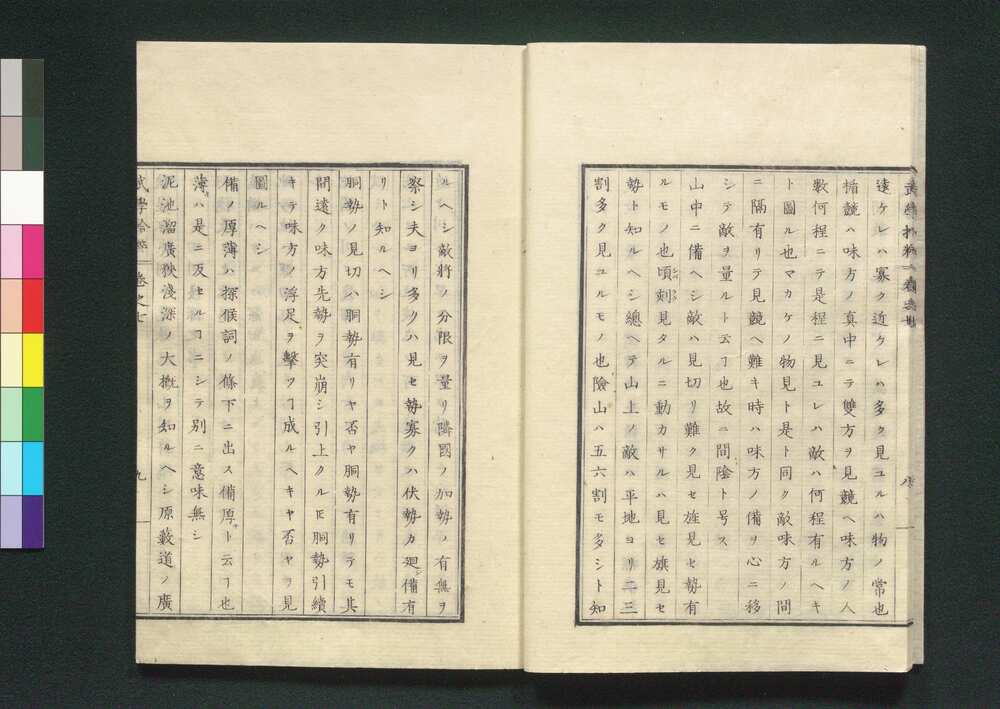 遠ケレハ寡ク近ケレハ多ク見ユルハ物ノ常也
楯競ハ味方ノ真中ニテ雙方ヲ見競ヘ味方ノ人
數何程ニテ是程ニ見ユレハ敵ハ何程有ルヘキ
ト圖ル也マカケノ物見ト是ト同ク敵味方ノ間
ニ隔有リテ見競ヘ難キ時ハ味方ノ備ヲ心ニ移
シテ敵ヲ量ルト云ヿ也故ニ間陰ト号ス
山中ニ備ヘシ敵ハ見切リ難ク見セ旌見セ勢有
ルモノ也頃刻見タルニ動カサルハ見セ旗見セ
勢ト知ルヘシ總ヘテ山上ノ敵ハ平地ヨリ二三
割多ク見ユルモノ也險山ハ五六割モ多シト知
ルヘシ敵將ノ分限ヲ量リ隣國ノ加勢ノ有無ヲ
察シ夫ヨリ多クハ見セ勢寡クハ伏勢カ廻シ備有
リト知ルヘシ
胴勢ノ見切ハ胴勢有リヤ否ヤ胴勢有リテモ其
間遠ク味方先勢ヲ突崩シ引上クルㇳモ胴勢引續
キテ味方ノ浮足ヲ擊ツヿ成ルヘキヤ否ヤヲ見
圖ルヘシ
備ノ厚薄ハ探候詞ノ條下ニ出ス備厚ト云ヿ也
薄ハ是ニ反セルヿニシテ別ニ意味無シ
泥池溜廣狹淺深ノ大概ヲ知ルヘシ原藪道ノ廣
武學拾粹 卷之七
九